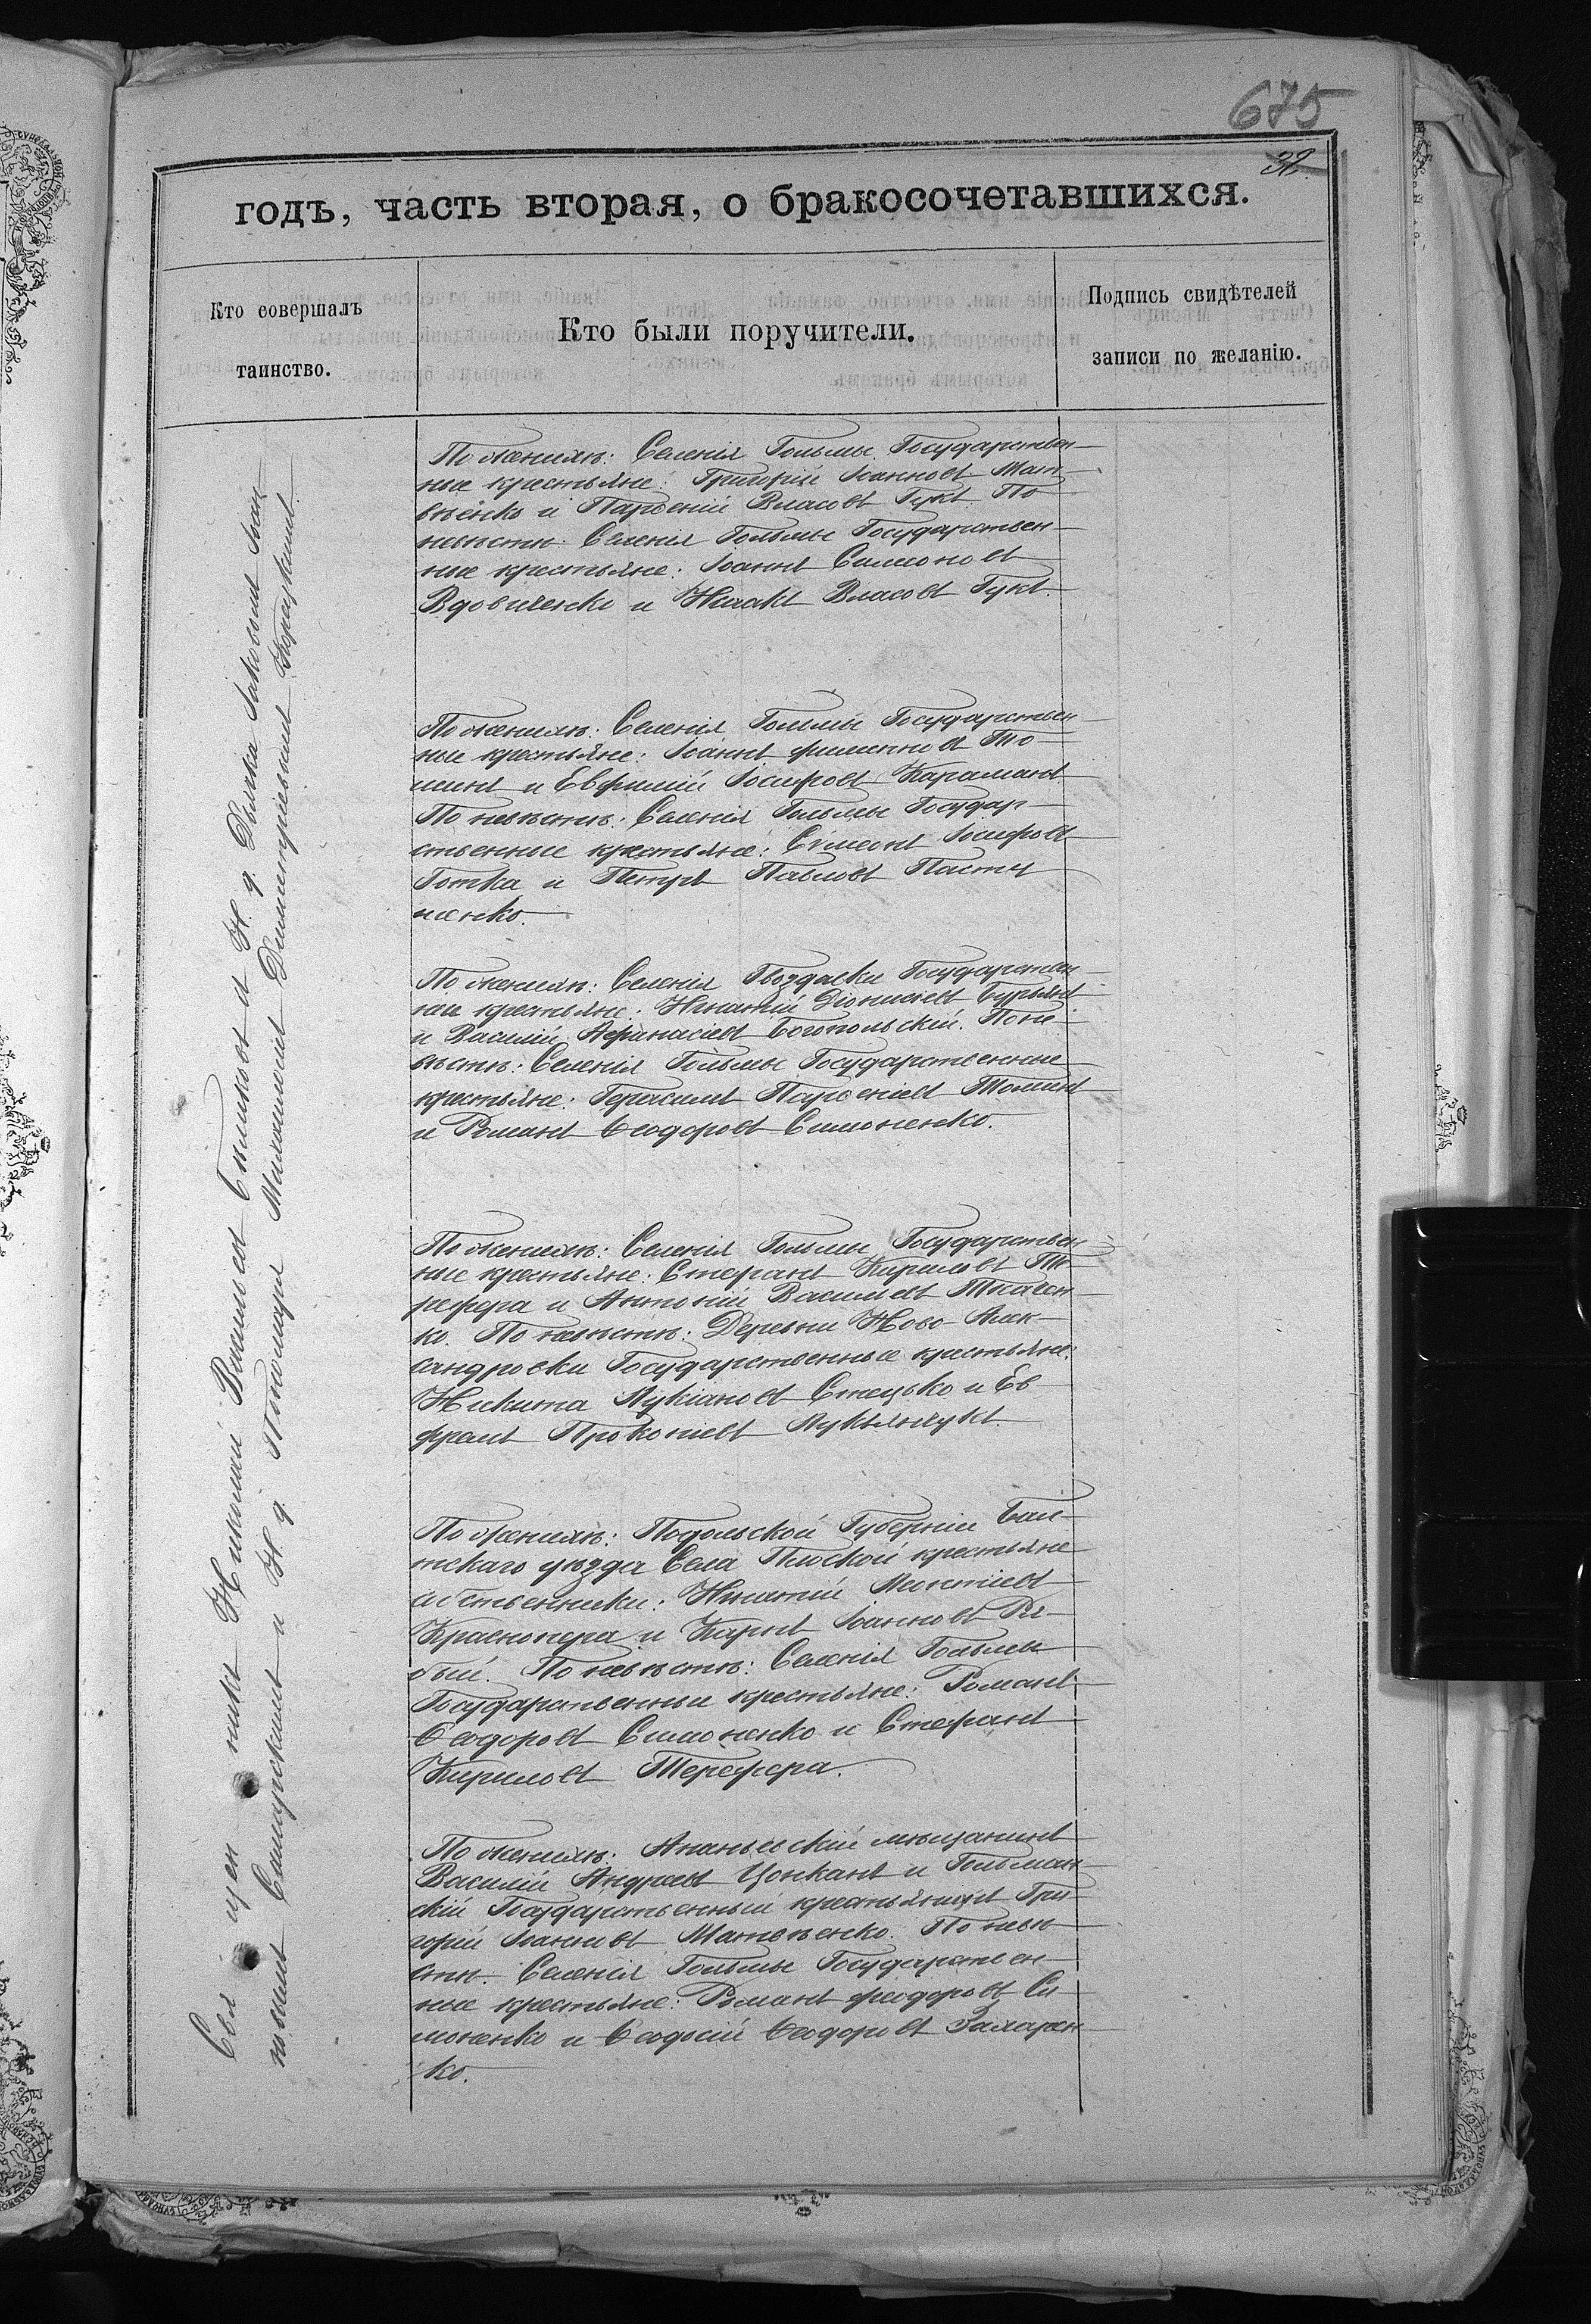 675
32.
годъ, часть вторая, о бракосочетавшихся.
Кто совершалъ
таинство.
Кто были поручители.
Подпись свидѣтелей
записи по желанію.
Священникъ Николай Васильевъ и Н. д. Дьяка Іаковомъ Іоан-
новымъ и Н. д. Пономаря Михаиломъ Димитріевымъ
По женихѣ: Селенія Гольмы Государствен-
ные крестьяне: Григорій Іоанновъ Мат-
вѣенко и Парѳеній Власовъ Гукъ. По
невѣстѣ: Селенія Гольмы Государствен-
ные крестьяне: Іоаннъ Симоновъ
Вдовиченко и Исаакъ Власовъ Гукъ.
По женихѣ: Селенія Гольмы Государствен-
ные крестьяне: Іоаннъ Филиповъ То-
минъ и Евфимій Іосифовъ Караманъ
По невѣстѣ: Селенія Гольмы Государ-
ственные крестьяне: Сѵмеонъ Іосифовъ
Готка и Петръ Павловъ Пасту-
шенко.
По женихѣ: Селенія Гвоздавки Государствен-
ные крестьяне: Игнатій Діонисіевъ Бурьянъ
и Василій Аѳанасіевъ Богопольскій. По не-
вѣстѣ: Селенія Гольмы Государственные
крестьяне: Герасимъ Парѳеніевъ Томинъ
и Романъ Ѳеодоровъ Симоненко.
По женихѣ: Селенія Гольмы Государствен-
ные крестьяне: Стефанъ Кириловъ Те-
рефера и Антоній Васильевъ Ткачен-
ко. По невѣстѣ: Деревни Ново-Алек-
сандровки Государственные крестьяне:
Никита Лукіановъ Стецько и Ев-
фремъ Прокопіевъ Лукьянчукъ.
По женихѣ: Подольской Губерніи Бал-
тскаго уѣзда Села Плоской крестьяне
собственники: Игнатій Леонтіевъ
Краснопера и Карпъ Іоанновъ Ря-
бый. По невѣстѣ: Селенія Гольмы
Государственные крестьяне: Романъ
Ѳеодоровъ Симоненко и Стефанъ
Кириловъ Терефера.
По женихѣ: Ананьевскій мѣщанинъ
Василій Андреевъ Цонканъ и Гольман-
скій Государственный крестьянинъ Гри-
горій Іоанновъ Матвѣенко. По невѣ-
стѣ: Селенія Гольмы Государствен-
ные крестьяне: Романъ Феодоровъ Си-
моненко и Ѳеодосій Ѳеодоровъ Захарен-
ко.